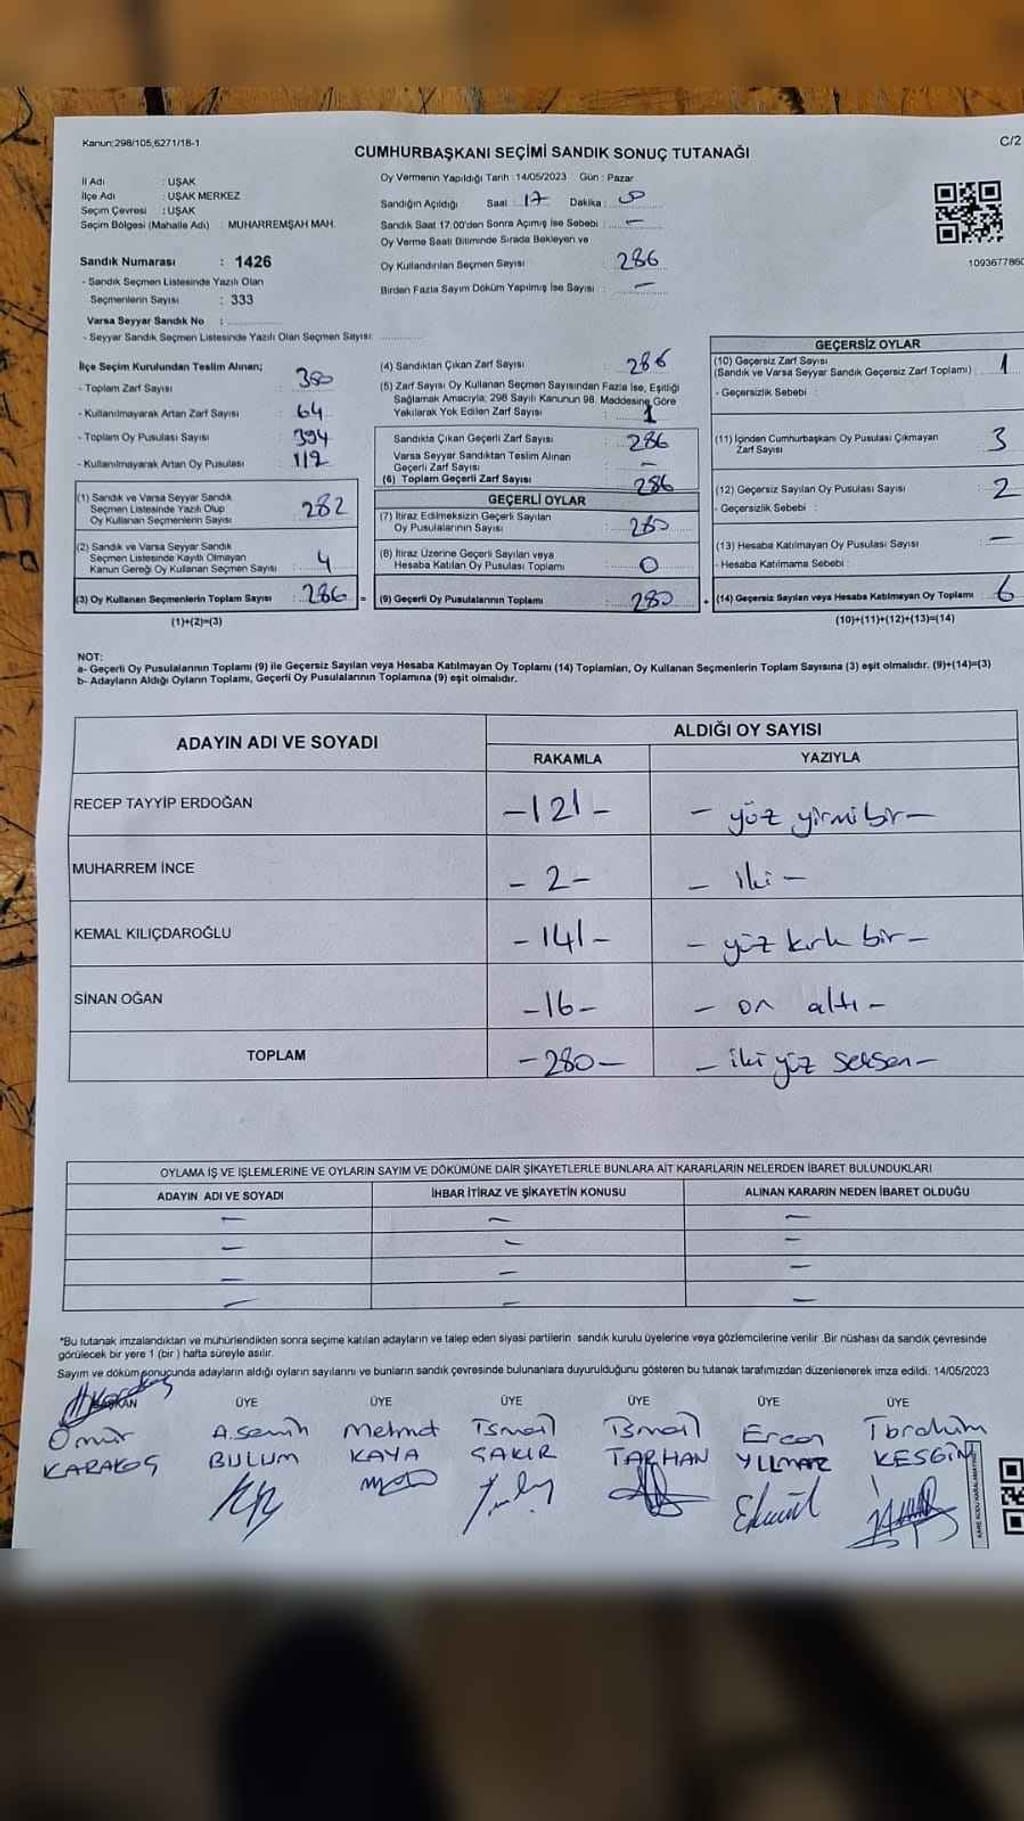 Kanun:298/105,6271/18-1
C/2
CUMHURBAŞKANI SEÇİMİ SANDIK SONUÇ TUTANAĞI
İl Adı : UŞAK
İlçe Adı : UŞAK MERKEZ
Seçim Çevresi : UŞAK
Seçim Bölgesi (Mahalle Adı) : MUHARREMŞAH MAH.
Sandık Numarası : 1426
- Sandık Seçmen Listesinde Yazılı Olan
Seçmenlerin Sayısı : 333
Varsa Seyyar Sandık No :
- Seyyar Sandık Seçmen Listesinde Yazılı Olan Seçmen Sayısı:
Oy Vermenin Yapıldığı Tarih : 14/05/2023 Gün : Pazar
Sandığın Açıldığı Saat : 17 Dakika :
Sandık Saat 17:00'den Sonra Açımış İse Sebebi : —
Oy Verme Saati Bitiminde Sırada Bekleyen ve
Oy Kullandırılan Seçmen Sayısı : 286
Birden Fazla Sayım Döküm Yapılmış İse Sayısı : —
1093677860
İlçe Seçim Kurulundan Teslim Alınan;
- Toplam Zarf Sayısı : 350
- Kullanılmayarak Artan Zarf Sayısı : 64
- Toplam Oy Pusulası Sayısı : 394
- Kullanılmayarak Artan Oy Pusulası : 112
(1) Sandık ve Varsa Seyyar Sandık
Seçmen Listesinde Yazılı Olup
Oy Kullanan Seçmenlerin Sayısı : 282
(2) Sandık ve Varsa Seyyar Sandık
Seçmen Listesinde Kayıtlı Olmayan
Kanun Gereği Oy Kullanan Seçmen Sayısı : 4
(3) Oy Kullanan Seçmenlerin Toplam Sayısı : 286 =
(1)+(2)=(3)
(4) Sandıktan Çıkan Zarf Sayısı : 286
(5) Zarf Sayısı Oy Kullanan Seçmen Sayısından Fazla İse, Eşitliği
Sağlamak Amacıyla; 298 Sayılı Kanunun 98. Maddesine Göre
Yakılarak Yok Edilen Zarf Sayısı : 1
Sandıkta Çıkan Geçerli Zarf Sayısı : 286
Varsa Seyyar Sandıktan Teslim Alınan
Geçerli Zarf Sayısı : —
(6) Toplam Geçerli Zarf Sayısı : 286
GEÇERLİ OYLAR
(7) İtiraz Edilmeksizin Geçerli Sayılan
Oy Pusulalarının Sayısı : 280
(8) İtiraz Üzerine Geçerli Sayılan veya
Hesaba Katılan Oy Pusulası Toplamı : 0
(9) Geçerli Oy Pusulalarının Toplamı : 280 +
GEÇERSİZ OYLAR
(10) Geçersiz Zarf Sayısı
(Sandık ve Varsa Seyyar Sandık Geçersiz Zarf Toplamı) : 1
- Geçersizlik Sebebi :
(11) İçinden Cumhurbaşkanı Oy Pusulası Çıkmayan
Zarf Sayısı : 3
(12) Geçersiz Sayılan Oy Pusulası Sayısı : 2
- Geçersizlik Sebebi :
(13) Hesaba Katılmayan Oy Pusulası Sayısı : —
- Hesaba Katılmama Sebebi :
(14) Geçersiz Sayılan veya Hesaba Katılmayan Oy Toplamı : 6
(10)+(11)+(12)+(13)=(14)
NOT:
a- Geçerli Oy Pusulalarının Toplamı (9) ile Geçersiz Sayılan veya Hesaba Katılmayan Oy Toplamı (14) Toplamları, Oy Kullanan Seçmenlerin Toplam Sayısına (3) eşit olmalıdır. (9)+(14)=(3)
b- Adayların Aldığı Oyların Toplamı, Geçerli Oy Pusulalarının Toplamına (9) eşit olmalıdır.
ADAYIN ADI VE SOYADI
ALDIĞI OY SAYISI
RAKAMLA YAZIYLA
RECEP TAYYİP ERDOĞAN -121- - yüz yirmi bir -
MUHARREM İNCE -2- - iki -
KEMAL KILIÇDAROĞLU -141- - yüz kırk bir -
SİNAN OĞAN -16- - on altı -
TOPLAM -280- - iki yüz seksen -
OYLAMA İŞ VE İŞLEMLERİNE VE OYLARIN SAYIM VE DÖKÜMÜNE DAİR ŞİKAYETLERLE BUNLARA AİT KARARLARIN NELERDEN İBARET BULUNDUKLARI
ADAYIN ADI VE SOYADI İHBAR İTİRAZ VE ŞİKAYETİN KONUSU ALINAN KARARIN NEDEN İBARET OLDUĞU
— — —
— — —
— — —
— — —
*Bu tutanak imzalandıktan ve mühürlendikten sonra seçime katılan adayların ve talep eden siyasi partilerin sandık kurulu üyelerine veya gözlemcilerine verilir .Bir nüshası da sandık çevresinde
görülecek bir yere 1 (bir ) hafta süreyle asılır.
Sayım ve döküm sonucunda adayların aldığı oyların sayılarını ve bunların sandık çevresinde bulunanlara duyurulduğunu gösteren bu tutanak tarafımızdan düzenlenerek imza edildi. 14/05/2023
BAŞKAN ÜYE ÜYE ÜYE ÜYE ÜYE ÜYE
Ömür A.Semih Mehmet İsmail İsmail Ercan İbrahim
KARAKOŞ BULUM KAYA ŞAKIR TARHAN YILMAZ KESGİN